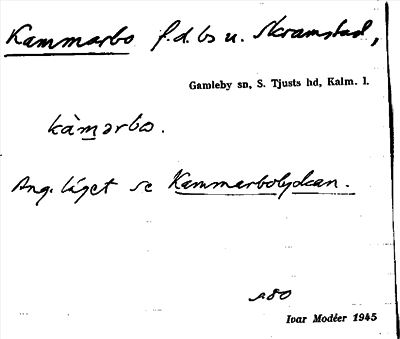 Kammarbo f.d. bs u. Skramstad,
Gamleby sn, S. Tjusts hd, Kalm. l.
kàmərbo.
Ang. läget se Kammarbolyckan.
Ivar Modéer 1945